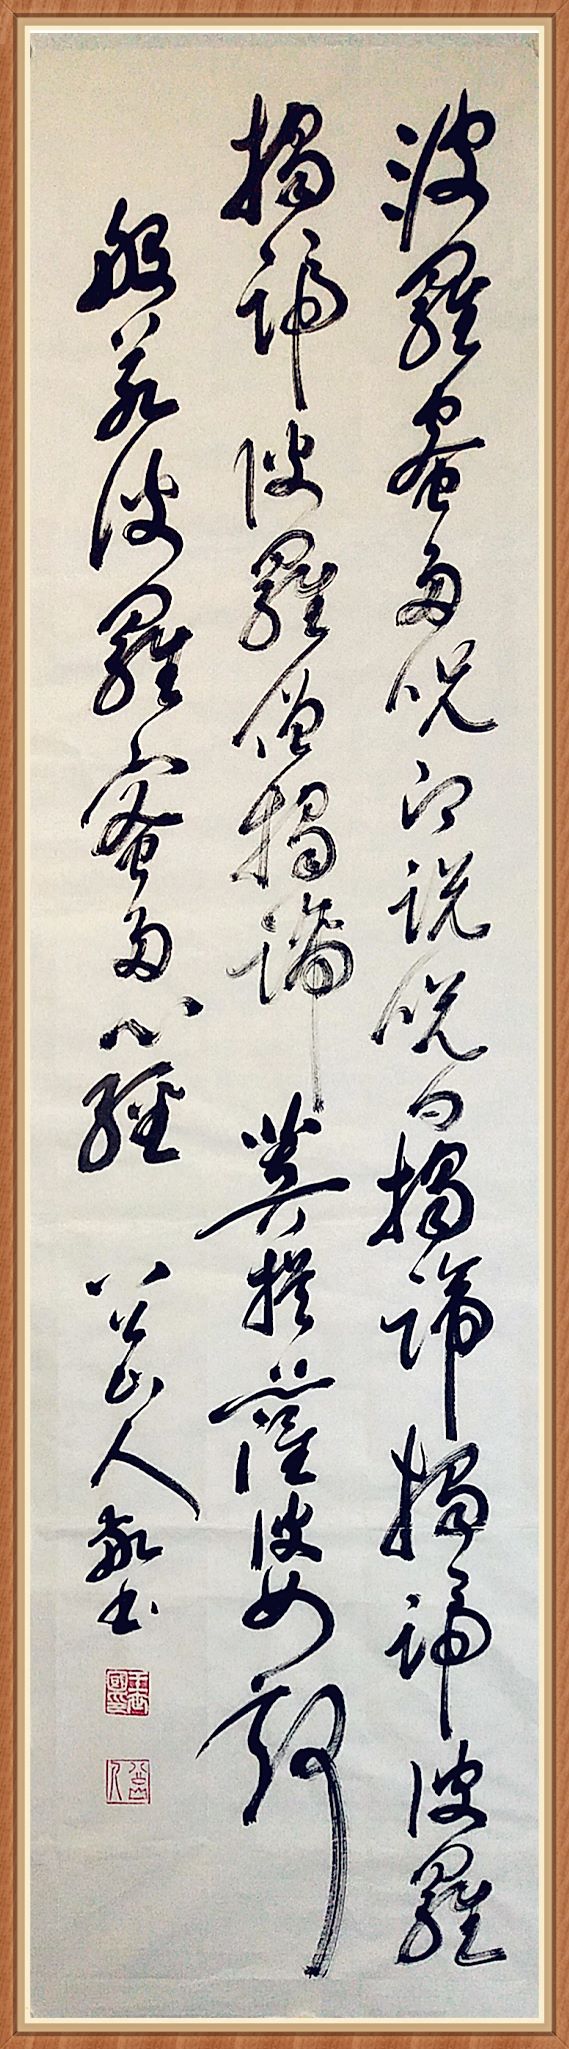 波羅蜜多呪即説呪曰揭諦揭諦波羅
揭諦波羅僧揭諦菩提薩婆訶
般若波羅蜜多心經 八公山人敬書
八公山人